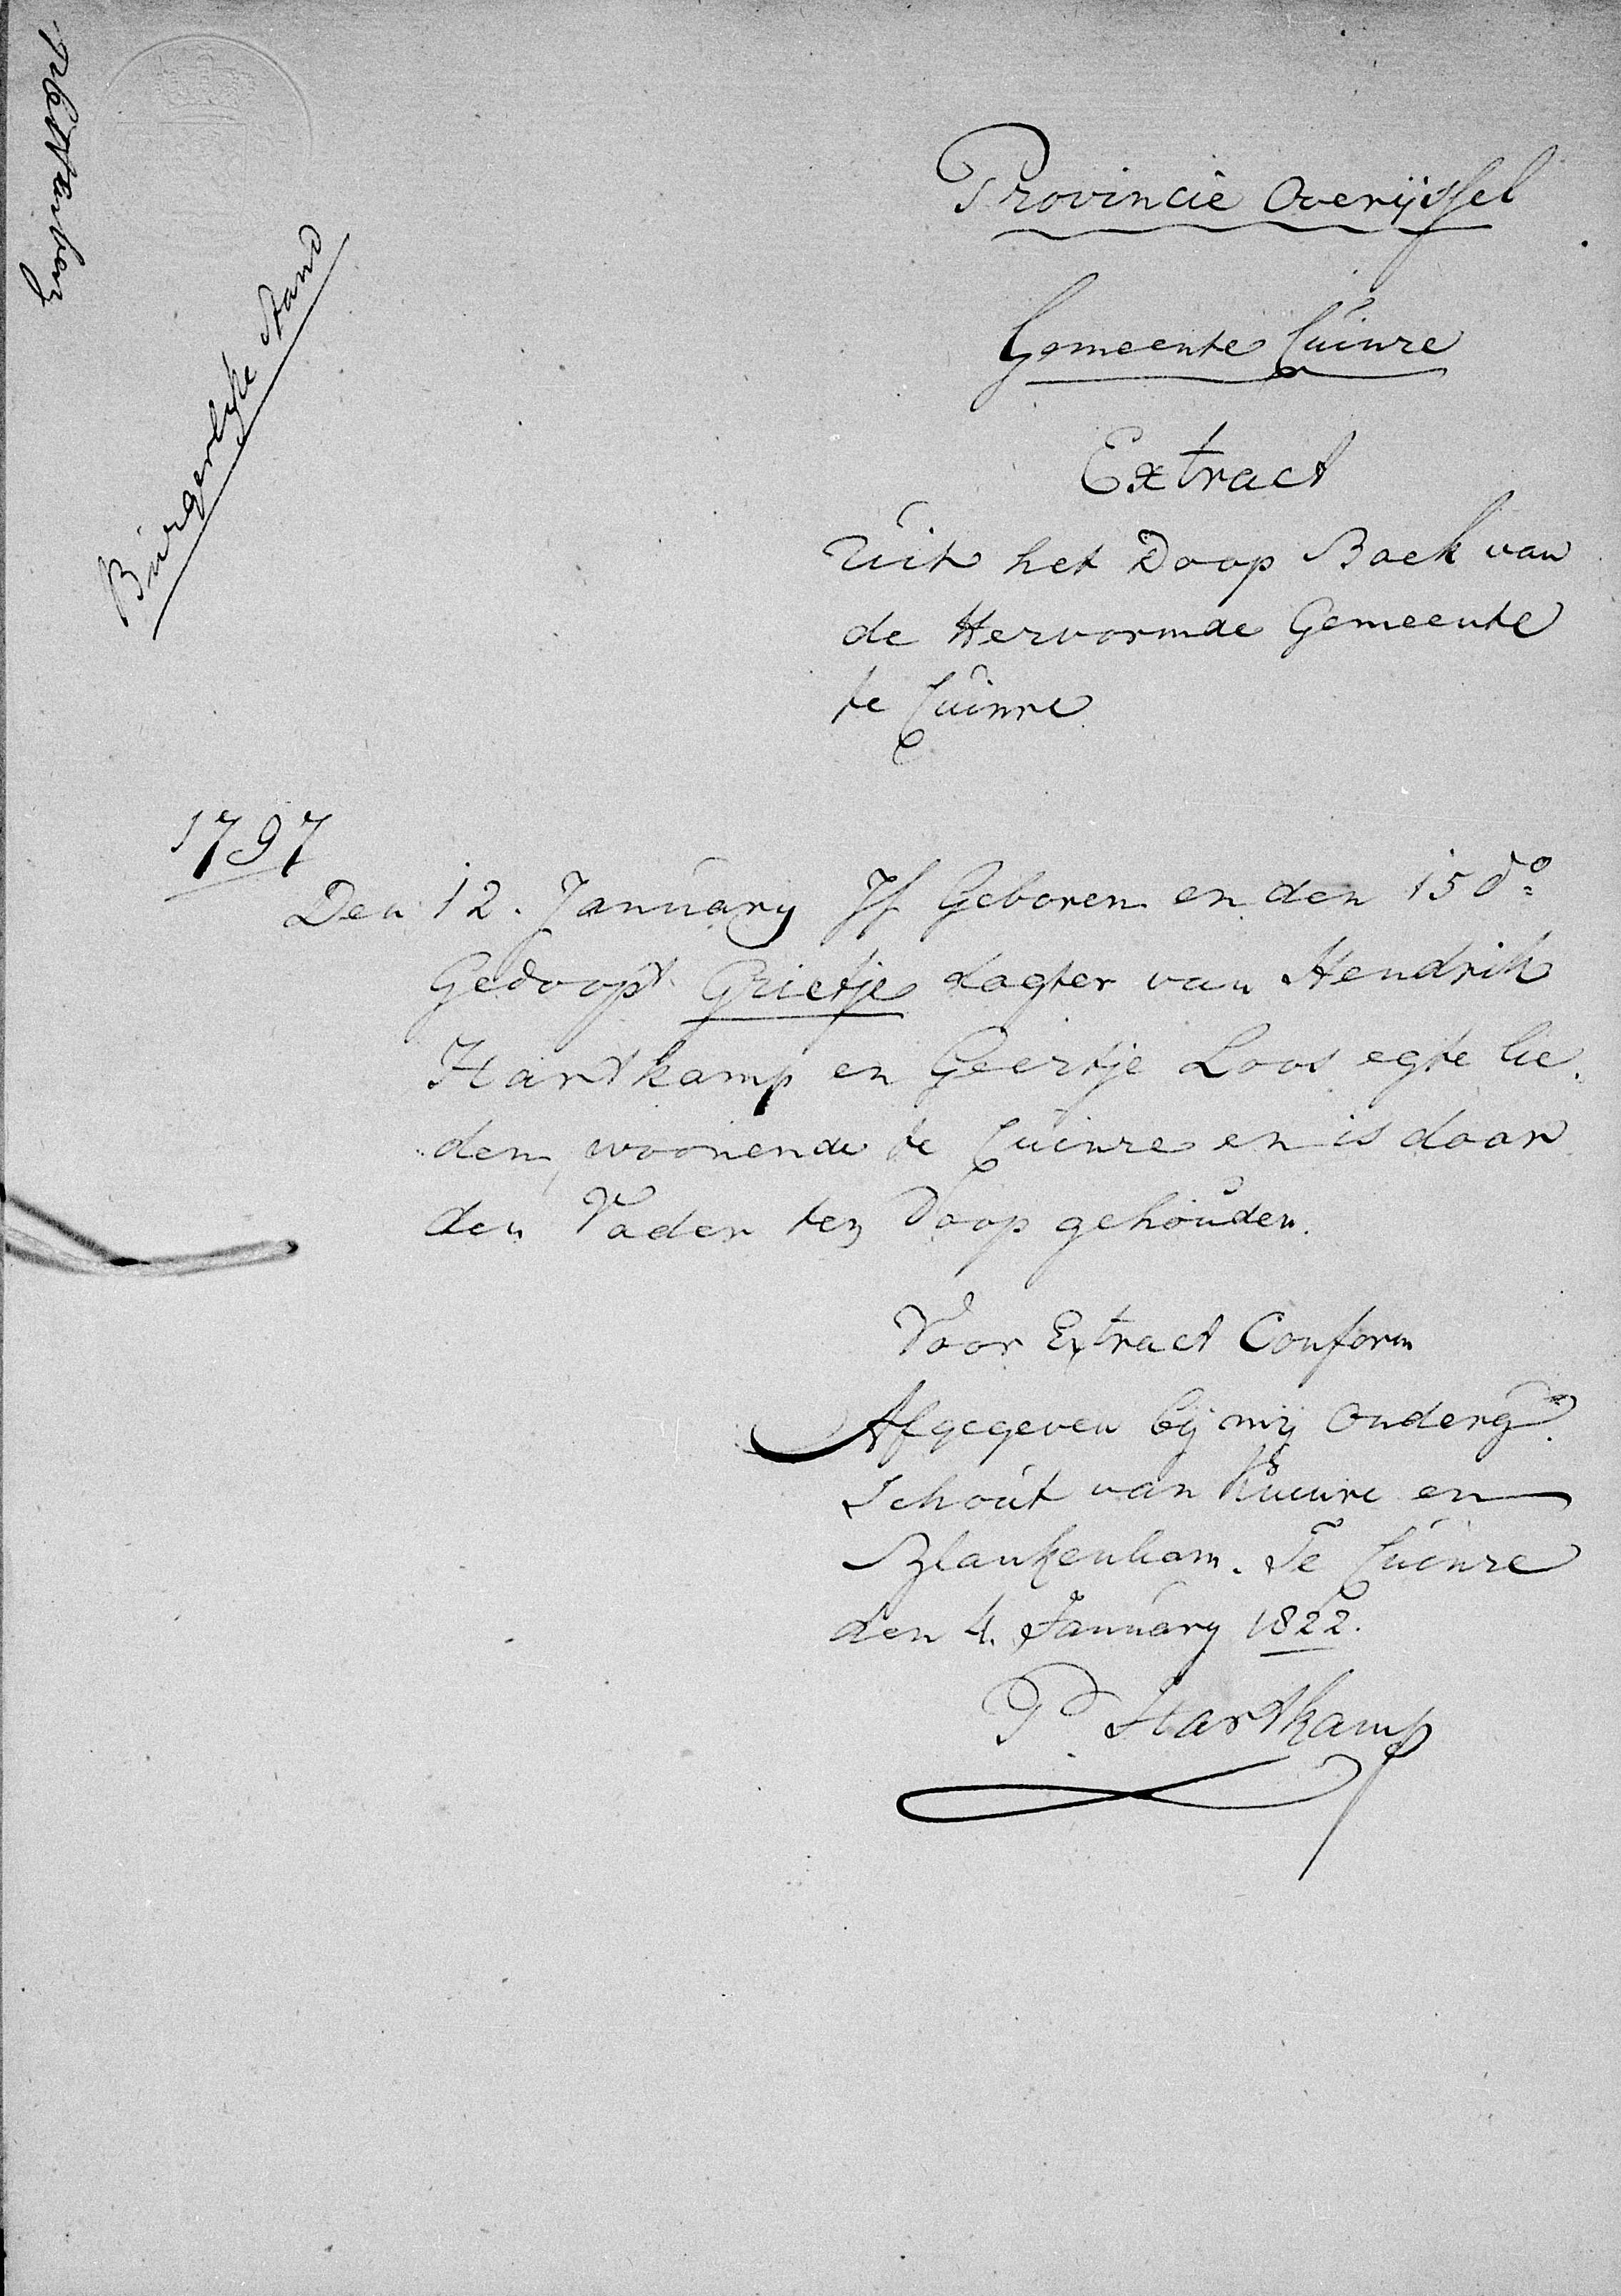 Burgerlijke Stand
Provincie Overijssel
Gemeente Cuinre
Extract
Uit het Doop Boek van
de Hervormde Gemeente
te Cuinre
1797
Den 12. January Is Geboren en den 15 do
Gedoopt Grietje dogter van Hendrik
Hartkamp en Geertje Loos egte lie-
den, woonende te Cuinre en is door
den Vader ten Doop gehouden.
Voor Extract Conform
Afgegeven bij mij Onderg
Schout van Kuinre en
Blankenham. Te Cuinre
den 4. January 1822.
P. Hartkamp